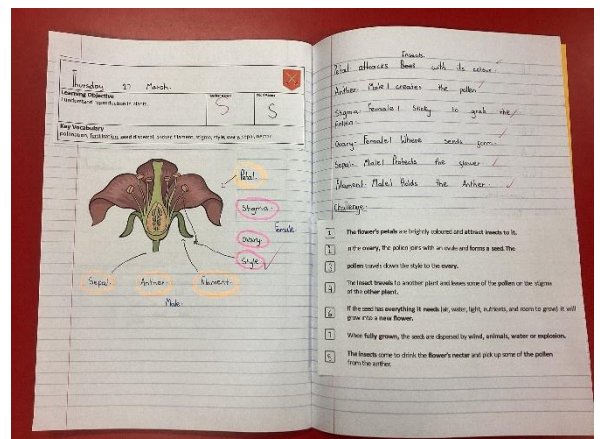 Thursday 27 March.
Learning Objective
I understand reproduction in plants.
S
S
Key Vocabulary
pollination, fertilisation, seed dispersal, anther, filament, stigma, style, ovary, sepal, nectar
Petal.
Stigma.
Female
Ovary.
Style
Sepal.
Anther.
Filament.
Male.
Insects
Petal attracts Bees with its colour.
Anther: Male| creates the pollen
Stigma: Female| Sticky to grab the
Pollen.
Ovary: Female| Where seeds form.
Sepal: Male| Protects the flower
Filament: Male| Holds the Anther.
Challenge:
1 The flower's petals are brightly coloured and attract insects to it.
2 In the ovary, the pollen joins with an ovule and forms a seed. The
3 pollen travels down the style to the ovary.
4 The insect travels to another plant and leaves some of the pollen on the stigma
of the other plant.
6 If the seed has everything it needs (air, water, light, nutrients, and room to grow) it will
grow into a new flower.
7 When fully grown, the seeds are dispersed by wind, animals, water or explosion.
8 The insects come to drink the flower's nectar and pick up some of the pollen
from the anther.